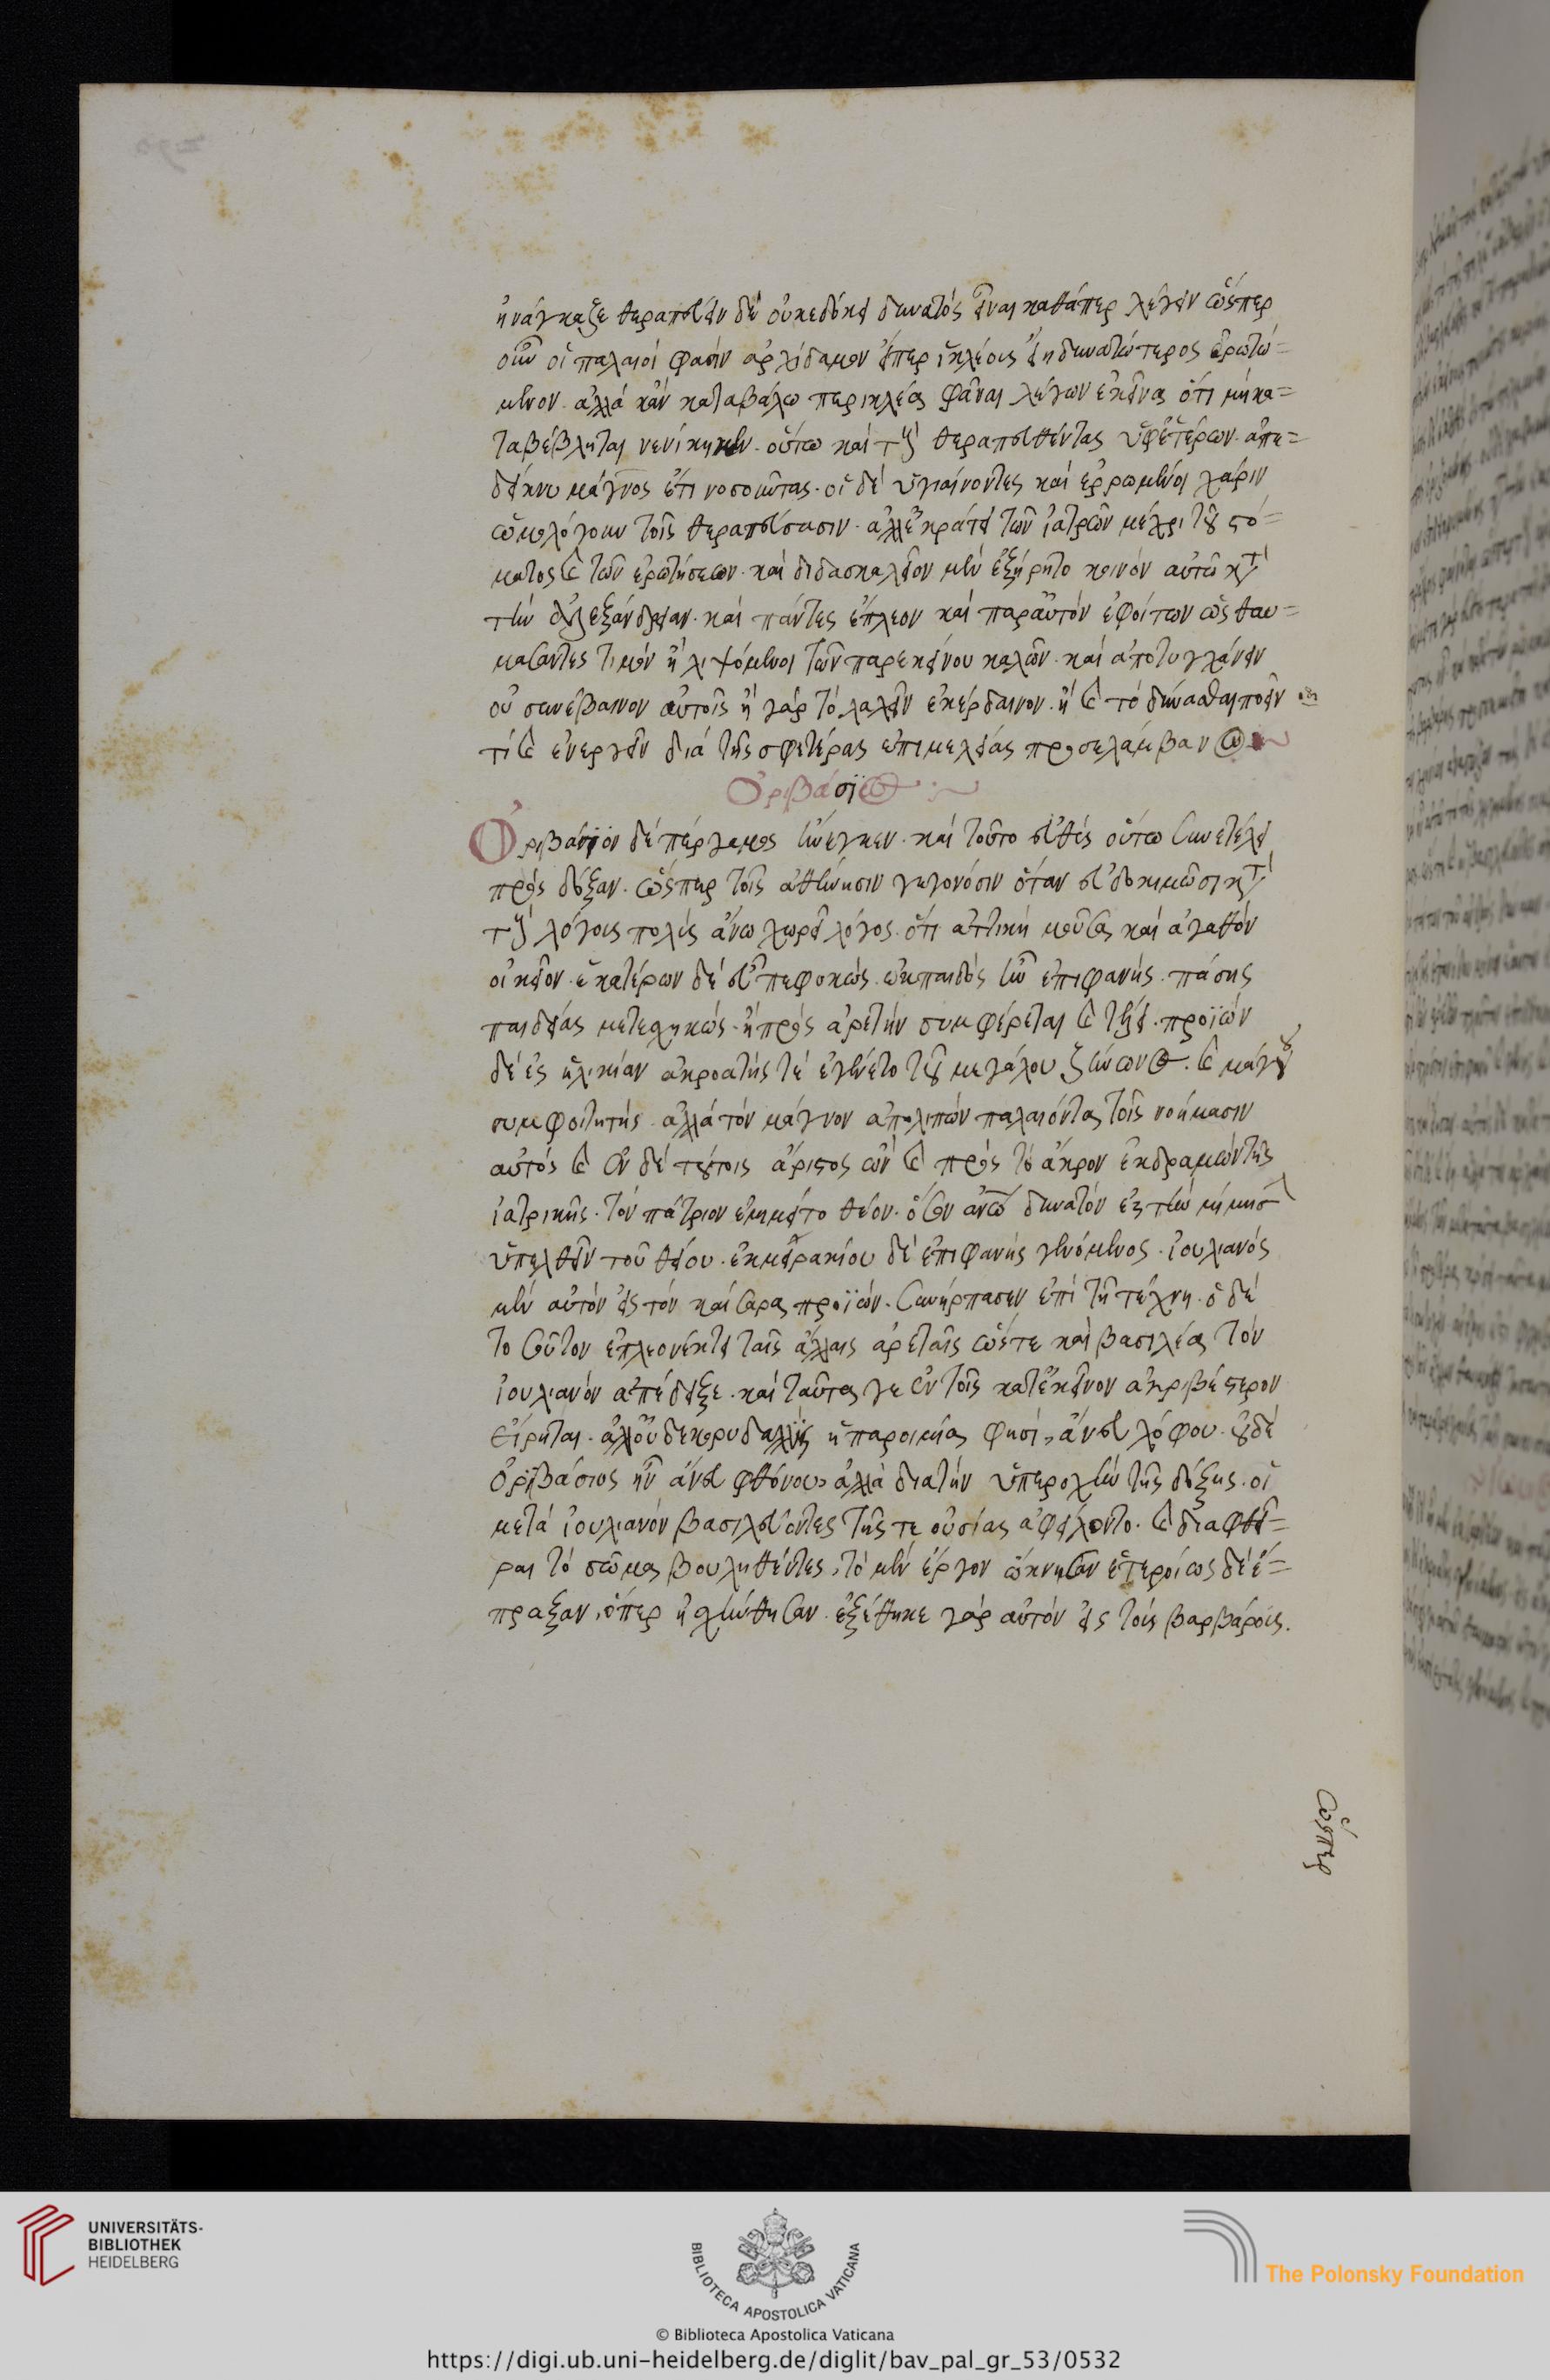 ἠνάγκαζε θεραπεύειν δὲ οὐκ ἐδόκει δυνατὸς εἶναι καθάπερ λέγειν ὥσπερ
οὖν οἱ παλαιοί φασιν ἀρχίδαμον εἴπερ ἱκλέοις εἴη δυνατώτερος ἐρωτώ=
μενον. ἀλλὰ κἂν καταβάλω περικλέα φάναι λέγων ἐκεῖνος ὅτι μὴ κα=
ταβέβληται νενίκηκεν. οὕτω καὶ τοὺς θεραπευθέντας ὑφ' ἑτέρων. ἀπε=
δείκνυ μάγνος ἔτι νοσοῦντας. οἱ δὲ ὑγιαίνοντες καὶ ἐρρωμένοι χάριν
ὡμολόγουν τοῖς θεραπεύσασιν. ἀλλ' ἐκράτει τῶν ἰατρῶν μέχρι τοῦ στό=
ματος καὶ τῶν ἐρωτήσεων. καὶ διδασκαλεῖον μὲν ἐξῄρητο κοινὸν αὐτῷ κατὰ
τὴν ἀλεξάνδρειαν. καὶ πάντες ἔπλεον καὶ παρ' αὐτὸν ἐφοίτων ὡς θαυ=
μάσαντες τι μόν ἢ ληψόμενοι τῶν παρ' ἐκείνου καλῶν. καὶ ἀποτυγχάνειν
οὐ συνέβαινον αὐτοῖς ἢ γὰρ τὸ λαλεῖν ἐκέρδαινον. ἢ καὶ τὸ δύνασθαι ποιεῖν
τί καὶ ἐνεργεῖν διὰ τῆς σφετέρας ἐπιμελείας προσελάμβανον
Ὀριβάσιος
Ὀριβάσιον δὲ πέργαμος ἤνεγκεν. καὶ τοῦτο εὐθὺς οὕτω συνετέλει
πρὸς δόξαν. ὥσπερ τοῖς ἀθήνησιν γεγονόσιν ὅταν εὐδοκιμῶσι κατὰ
τοὺς λόγους πολὺς ἄνω χωρεῖ λόγος. ὅτι ἀττικὴ μοῦσα καὶ ἀγαθὸν
οἰκεῖον. ἑκατέρων δὲ εὖ πεφυκώς. ἐκ παιδὸς ἦν ἐπιφανής. πάσης
παιδείας μετεσχηκώς. ἣ πρὸς ἀρετὴν συμφέρεται καὶ τελεῖ. προϊών
δὲ ἐς ἡλικίαν ἀκροατής τε ἐγένετο τοῦ μεγάλου ζήνωνος. καὶ μάγνου
συμφοιτητής. ἀλλὰ τὸν μάγνον ἀπολιπὼν παλαιόντα τοῖς νοήμασιν
αὐτὸς καὶ ἐν δὲ τούτοις ἄριστος ὢν καὶ πρὸς τὸ ἄκρον ἐκδραμὼν τῆς
ἰατρικῆς. τὸν πάτριον ἐμιμεῖτο θεόν. ὅσον ἀνω δυνατὸν ἐς τὴν μίμησιν
ὑπελθεῖν τοῦ θείου. ἐκ μειρακίου δὲ ἐπιφανὴς γενόμενος. ἰουλιανός
μὲν αὐτὸν εἰς τὸν καίσαρα προϊών. συνήρπασεν ἐπὶ τῇ τέχνῃ. ὁ δὲ
τοσοῦτον ἐπλεονέκτει ταῖς ἄλλαις ἀρεταῖς ὥστε καὶ βασιλέα τόν
ἰουλιανὸν ἀπέδειξε. καὶ ταῦτα γε ἐν τοῖς κατ' ἐκεῖνον ἀκριβέστερον
εἴρηται. ἀλλ' οὐδὲ κορυδαλλὶς ἡ παροιμία φησὶ, ἄνευ λόφου. οὐδὲ
ὀριβάσιος ἦν ἄνευ φθόνου, ἀλλὰ διὰ τὴν ὑπεροχὴν τῆς δόξης. οἱ
μετὰ ἰουλιανὸν βασιλεύοντες τῆς τε οὐσίας ἀφείλοντο. καὶ διαφθεῖ=
ραι τὸ σῶμα βουληθέντες, τὸ μὲν ἔργον ὤκνησαν ἑτεροίως δὲ ἔ=
πραξαν, ὅπερ ᾐσχύνθησαν. ἐξέθηκε γὰρ αὐτὸν εἰς τοὺς βαρβάρους.
ὥσπερ
UNIVERSITÄTS-
BIBLIOTHEK
HEIDELBERG
BIBLIOTECA APOSTOLICA VATICANA
The Polonsky Foundation
© Biblioteca Apostolica Vaticana
https://digi.ub.uni-heidelberg.de/diglit/bav_pal_gr_53/0532